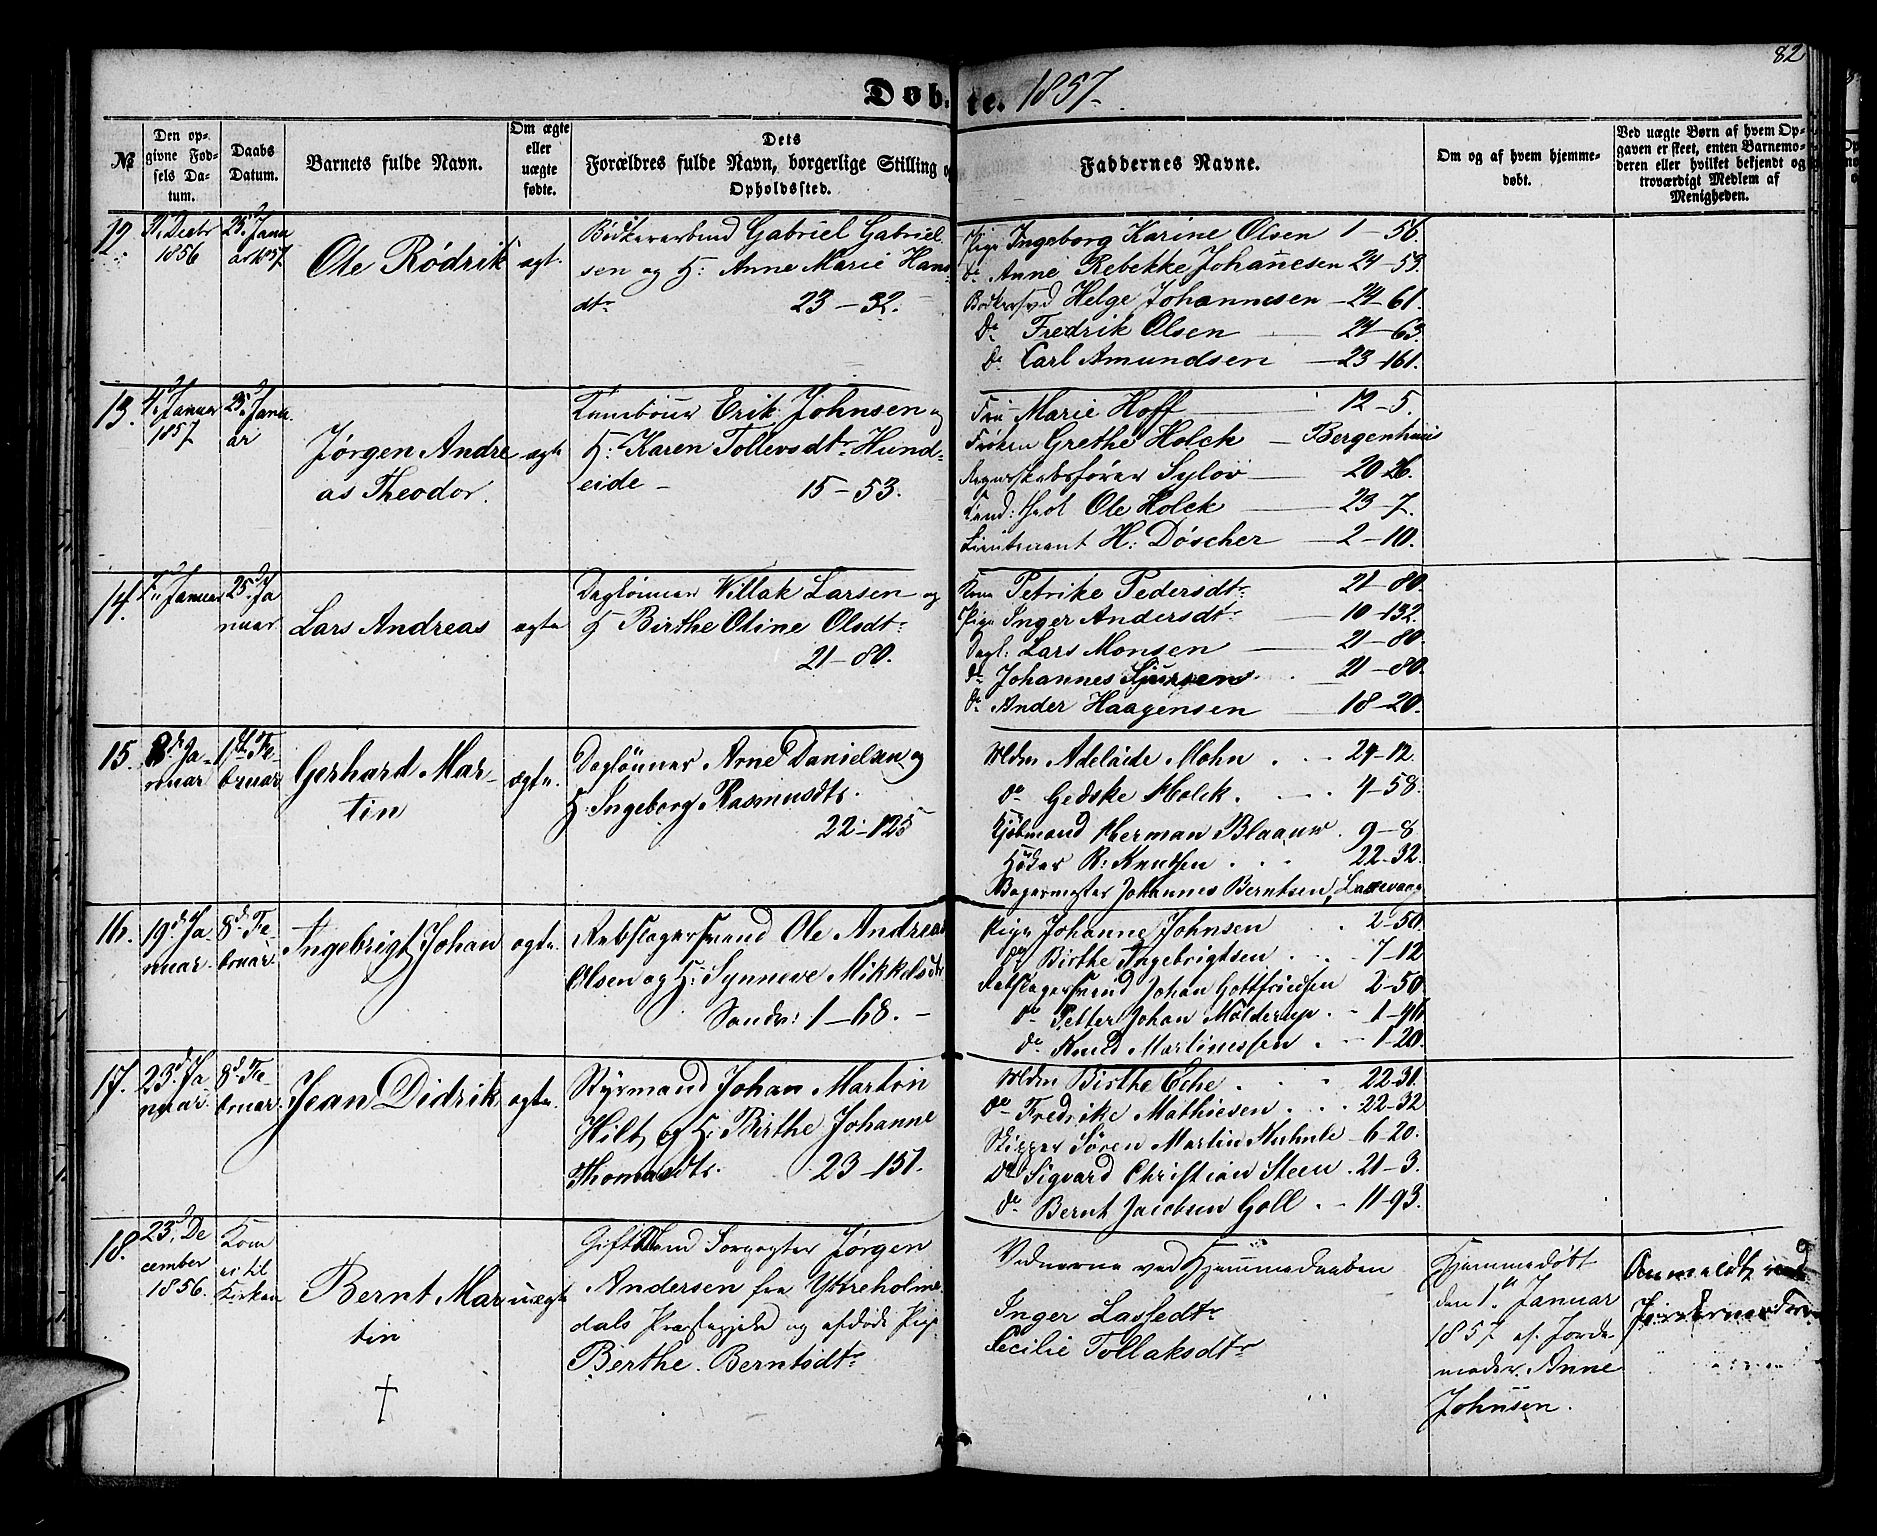 82
Døbte. 1857.
№
Den opgivne Fødsels Datum.
Daabs Datum.
Barnets fulde Navn.
Om ægte eller uægte fødte.
Dets Forældres fulde Navn, borgerlige Stilling
Opholdssted.
Faddernes Navne.
Om og af hvem hjemmedøbt.
Ved uægte Børn af hvem Opgaven er skeet, enten Barnemoderen eller hvilket bekjendt og troværdigt Medlem af Menigheden.
12.
Decbr 1856
25. Januar 1857.
Ole Rødrik
ægt.
Bødkersvend Gabriel Gabriel
sen og H: Anne Marie Hans
dtr 23-32.
Pige Ingeborg Karine Olsen 1-56.
do Anne Rebekke Johannesen 24-53.
Bødkersvd Helge Johannesen 24-61
Do Fredrik Olsen 24-63.
do Carl Amundsen 23-161.
13.
4. Januar 1857
25. Januar
Jørgen Andre
as Theodor.
ægte
Erik Johnsen og
H: Karen Tollevsdtr Hund=
eide 15-53.
Fru Marie Hoff 12-5.
Frøken Grethe Holck Bergenhuus
Regnskabsfører Sylov 20-26.
Cand: theol Ole Holck 23-7.
Lieutenant H: Døscher 2-10.
14.
Januar
25. Ja
nuar
Lars Andreas
ægte
Daglønner Willak Larsen og
H Birthe Oline Olsdtr
21-80.
Kone Petrike Pedersdtr 21-80.
Pige Inger Andersdtr 10-132.
Dagl: Lars Monsen 21-80.
do Johannes Sjursen 21-80.
do Ander Haagensen 18-20.
15.
8de Ja-
nuar
1ste Fe
bruar
Gerhard Mar-
tin
ægte.
Daglønner Arne Danielsen og
H. Ingeborg Rasmusdtr.
22-125
Md Adelaide Mohn 24-12.
do Gedske Holck. 4-58.
Kjøbmand Herman Blaauw. 9-8
Høker R: Knutsen 22-32.
Bagermester Johannes Berntsen, Laxevaag
16.
19de Ja-
nuar
8de Fe-
bruar.
Ingebrigt Johan
ægte.
Rebslagersvend Ole Andreas
Olsen og H: Synneve Mikkelsdtr
Sandv: 1-68.
Pige Johanne Johnsen 2-50.
do Birthe Ingebrigtsen. 7-12
Rebslagersvend Johan Gottfriedsen 2-50
do Petter Johan Mølderup. 1-46
do Knud Martinussen. 1-20.
17.
23de Ja
nuar.
8de Fe-
bruar.
Jean Didrik
ægte.
Styrmand Johan Martin
Hilt og H: Birthe Johanne
Thomasdtr. 23-151.
Md Birthe Eche. 22-31.
do Fredrike Mathiesen. 22-32
Skipper Søren Martin Kuhnle 6-20.
Do Sigvard Christian Steen. 21-3.
do Bernt Jacobsen Goll. 11-93.
18.
23. De
cember
1856.
Kom
ei til
Kirken
Bernt Mar
tin
†
uægte
Gift Mand Jørgen
Andersen fra Yttreholme
dals Præstegjeld og afdøde Pige
Berthe. Berntsdtr
Vidnerne ved Hjemmedaaben
Inger Lassedtr
Cecilie Tollaksdtr
Hjemmedøbt
den 1. Januar
1857 af Jorde
moder. Anne
Johnsen.
Anmeldt